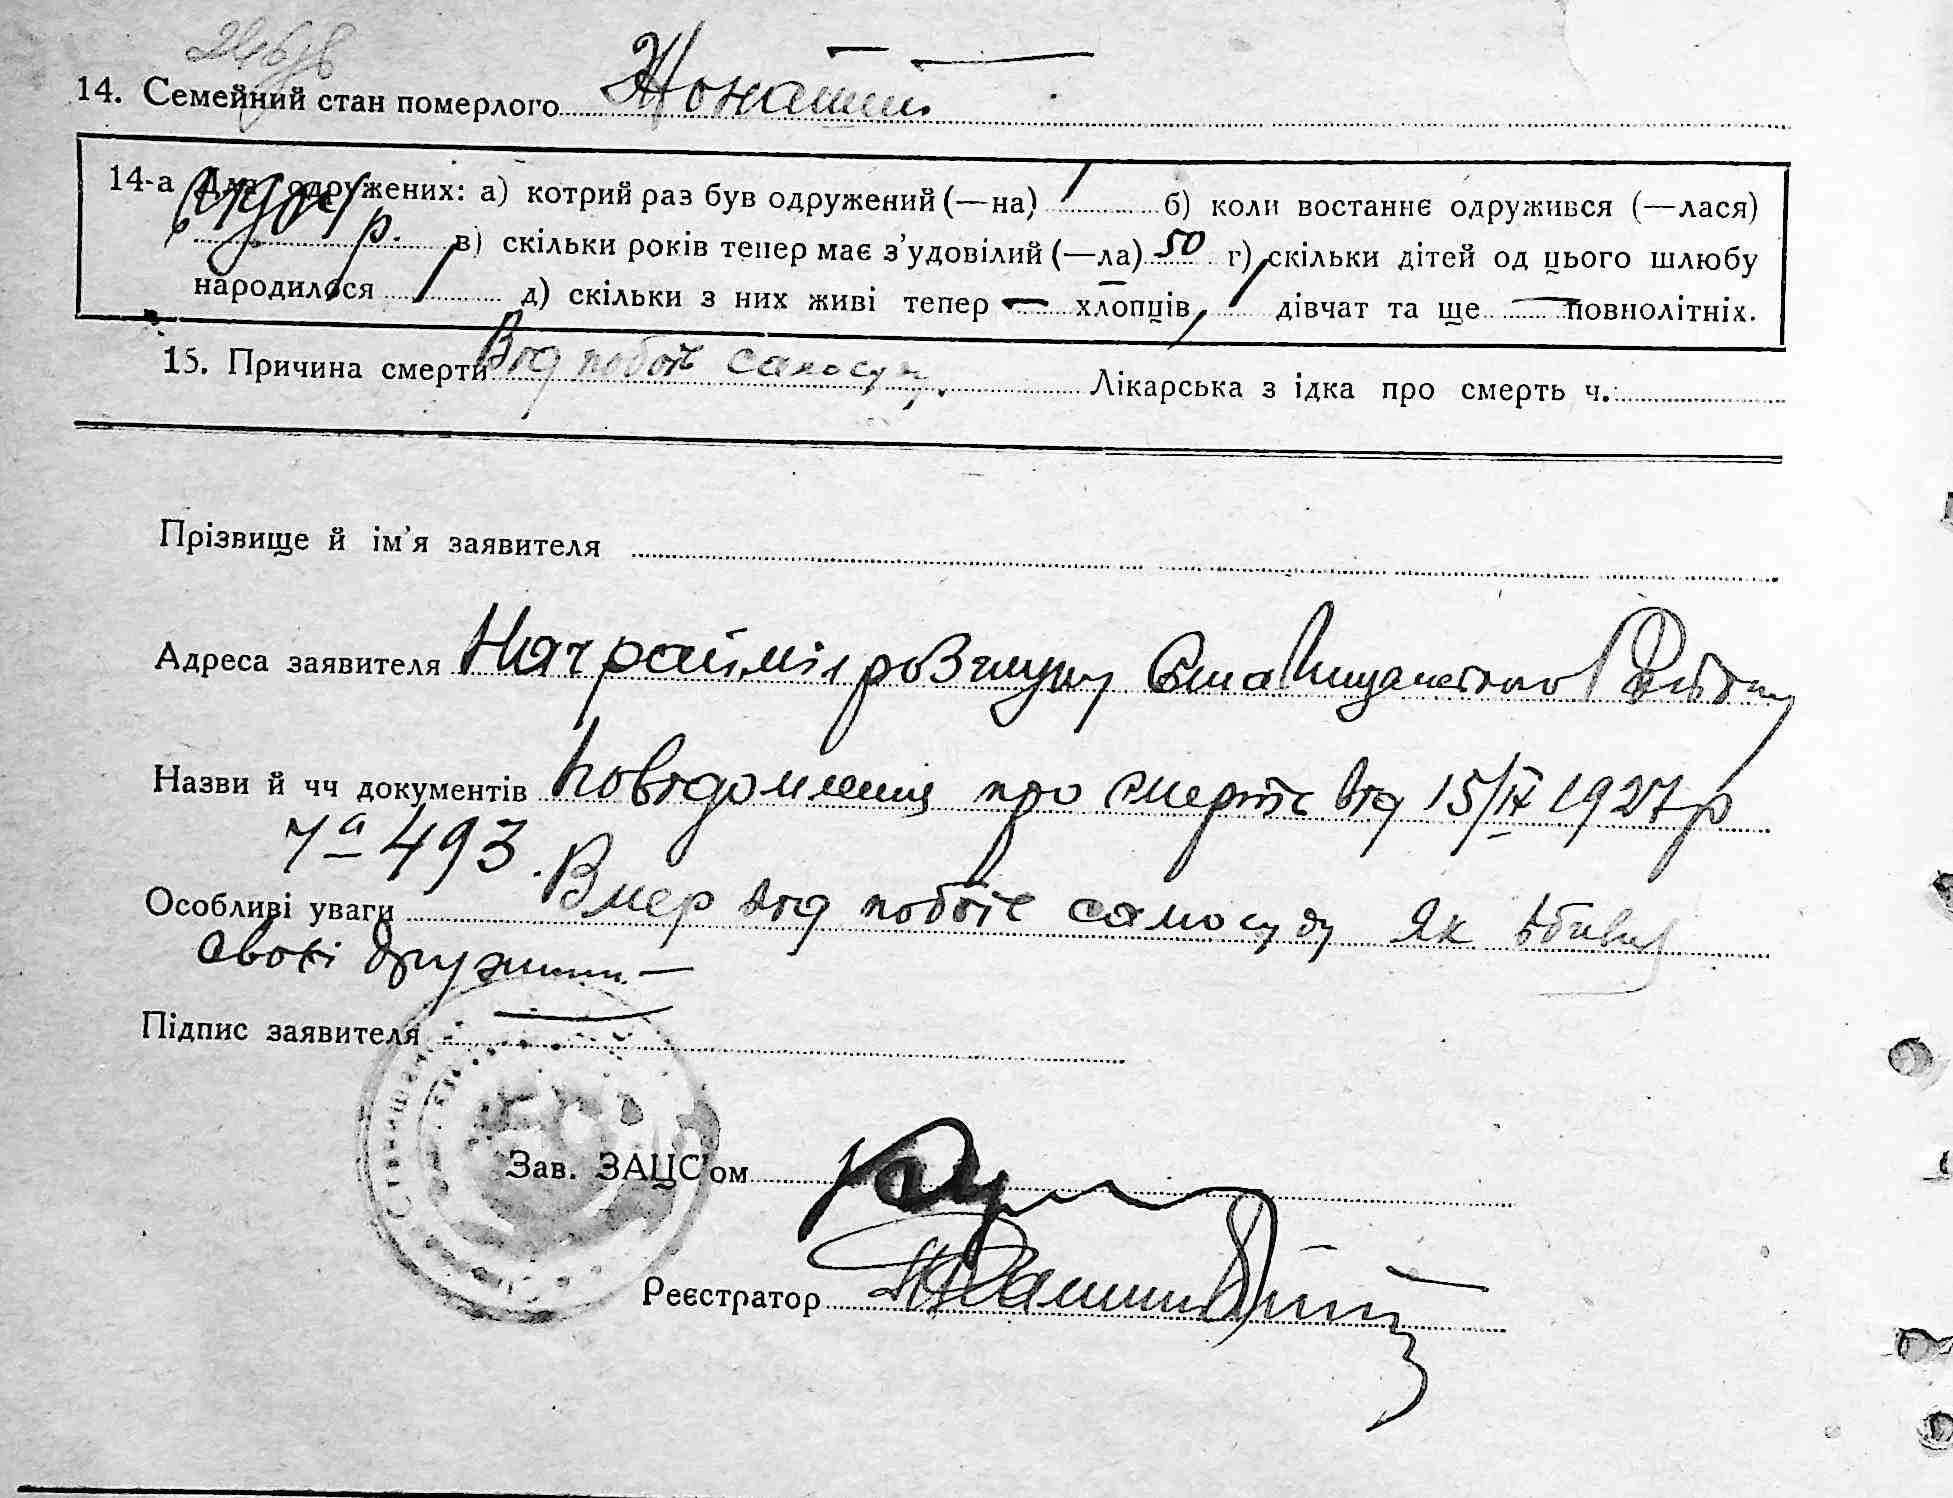 14. Семейний стан померлого Жонатий
14-а Для одружених: а) котрий раз був одружений (—на) 1 б) коли востаннє одружився (—лася)
в 1904 р. в) скільки років тепер має з’удовілий (—ла) 50 г) скільки дітей од цього шлюбу
народилося 1 д) скільки з них живі тепер — хлопців, 1 дівчат та ще — повнолітніх.
15. Причина смерти Від побоїв самосуду. Лікарська з ідка про смерть ч.
Прізвище й ім’я заявителя
Адреса заявителя Нач райміл розшуку Ставищанського Району
Назви й чч документів Повідомлення про смерть від 15/IX 1927 р
ча 493.
Особливі уваги Вмер від побоїв самосуду як вбивця
своєї дружини —
Підпис заявителя
Зав. ЗАЦС’ом
Реєстратор